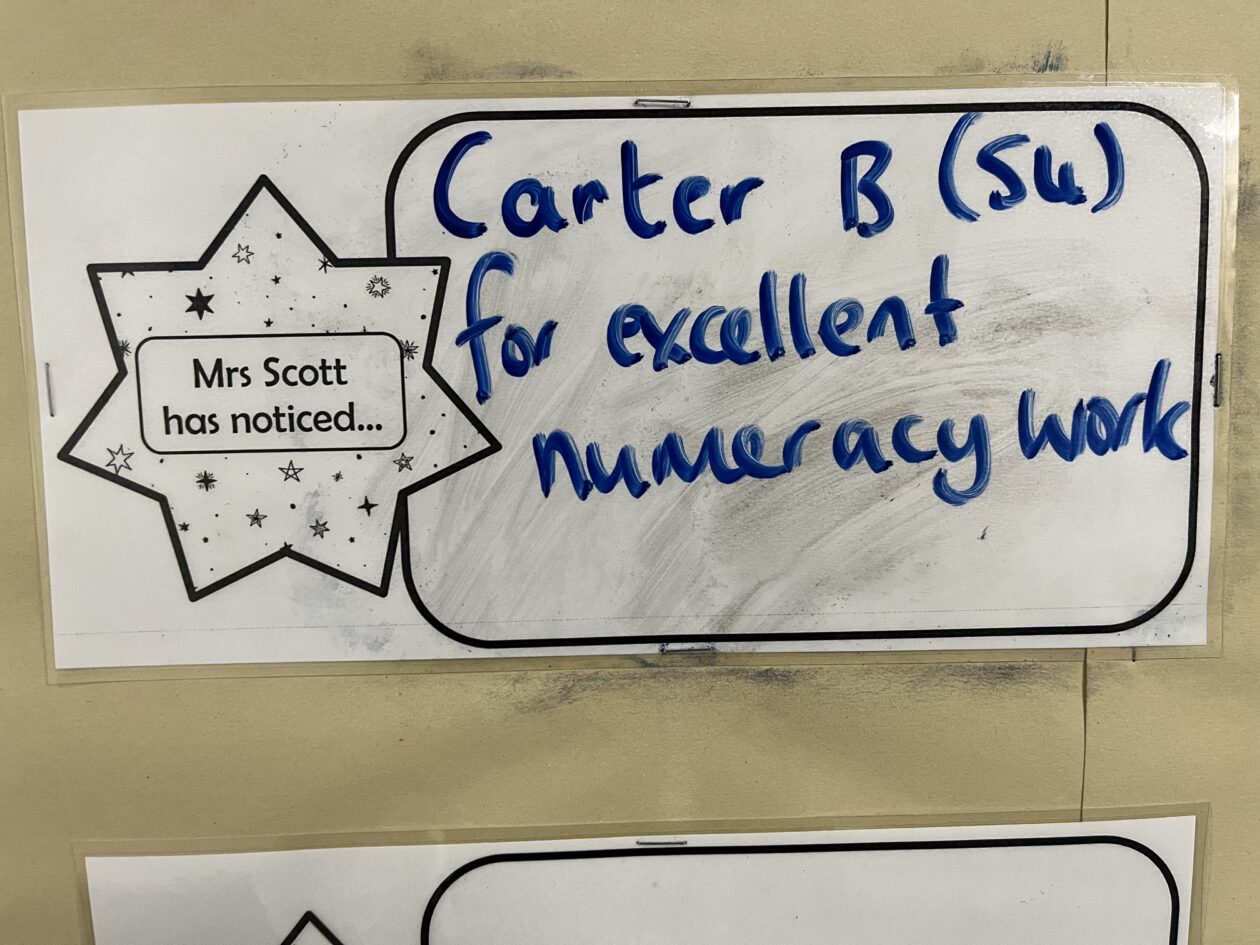 Mrs Scott
has noticed...
Carter B (S4)
for excellent
numeracy work